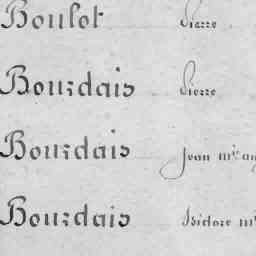 Boulot Pierre
Bourdais Pierre
Bourdais Jean Mie
Bourdais Isidore Mie